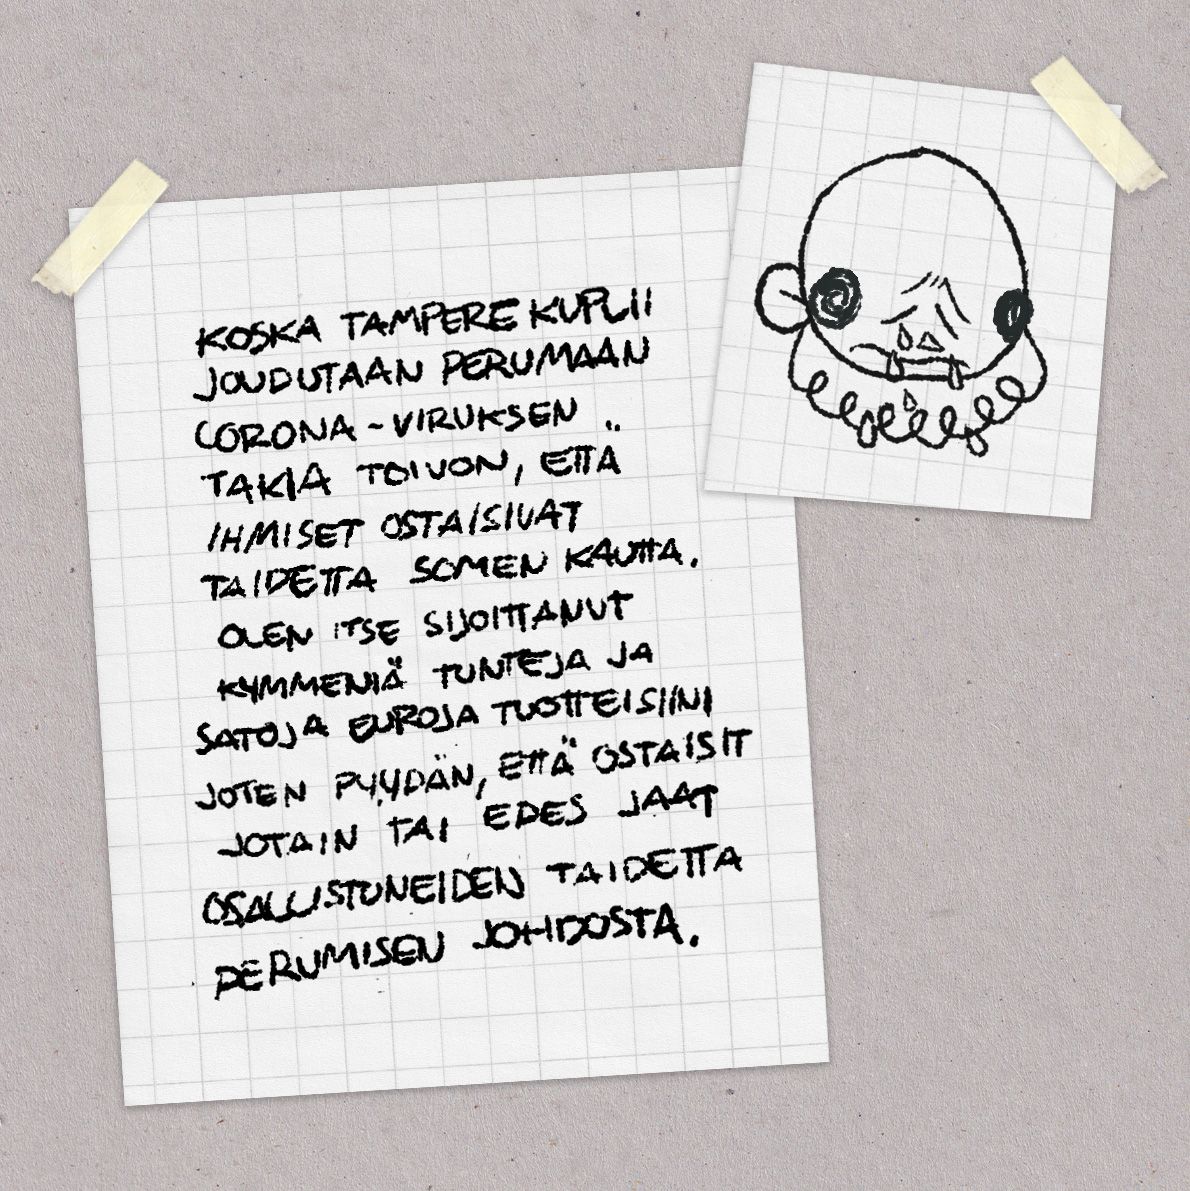 KOSKA TAMPERE KUPLII
JOUDUTAAN PERUMAAN
CORONA-VIRUKSEN
TAKIA TOIVON, ETTÄ
IHMISET OSTAISIVAT
TAIDETTA SOMEN KAUTTA.
OLEN ITSE SIJOITTANUT
KYMMENIÄ TUNTEJA JA
SATOJA EUROJA TUOTTEISIINI
JOTEN PYYDÄN, ETTÄ OSTAISIT
JOTAIN TAI EDES JAAT
OSALLISTUNEIDEN TAIDETTA
PERUMISEN JOHDOSTA.